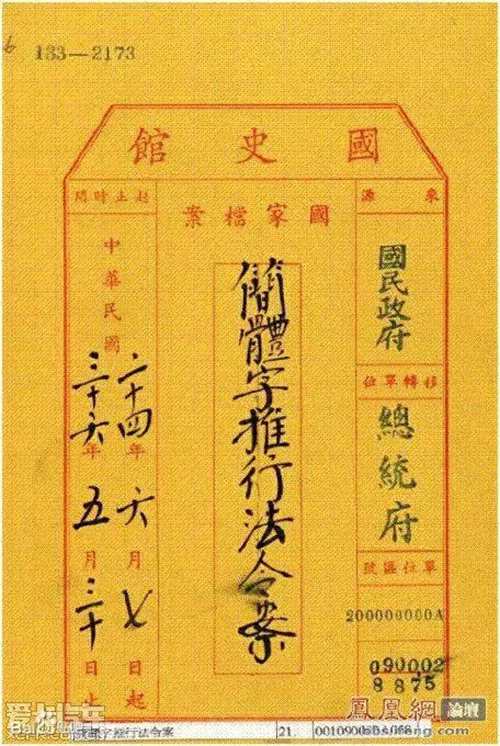 6
133—2173
國史館
來源
國民政府
移轉單位
總統府
單位區號
200000000A
090002
8875
國家檔案
簡體字推行法令案
起止時間
中華民國
二十四年六月七日起
三十六年五月三十日止
字推行法令案
21.
鳳凰網 論壇